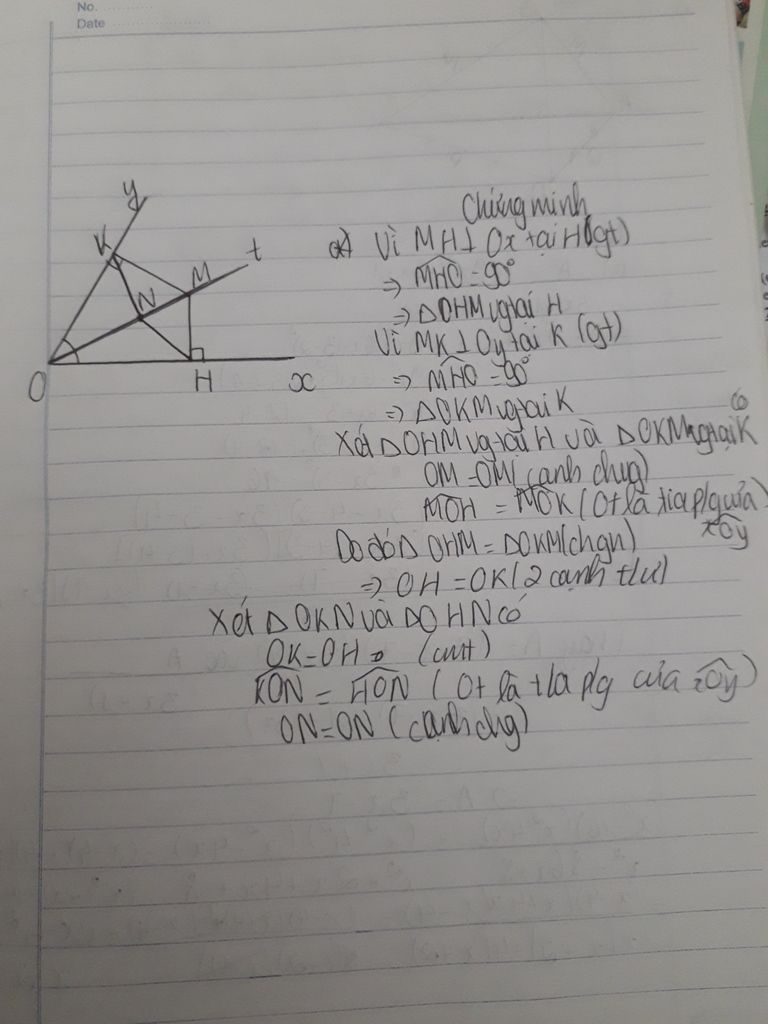 No.
Date
y
K
t
M
N
O
H
x
Chứng minh
a) Vì MH⊥Ox tại H(gt)
⇒ MHO = 90°
⇒ ΔOHM vg tại H
Vì MK⊥Oy tại K (gt)
⇒ MHO = 90°
⇒ ΔOKM vg tại K
Xét ΔOHM vg tại H và ΔOKM vg tại K có
OM = OM (cạnh chug)
MOH = MOK (Ot là tia p/g của xOy
Do đó Δ OHM = ΔOKM (chgn)
⇒ OH = OK (2 cạnh t/ư)
Xét Δ OKN và ΔOHN có
OK=OH (cmt)
KON = HON (Ot là tia p/g của xOy)
ON=ON (cạnh chg)